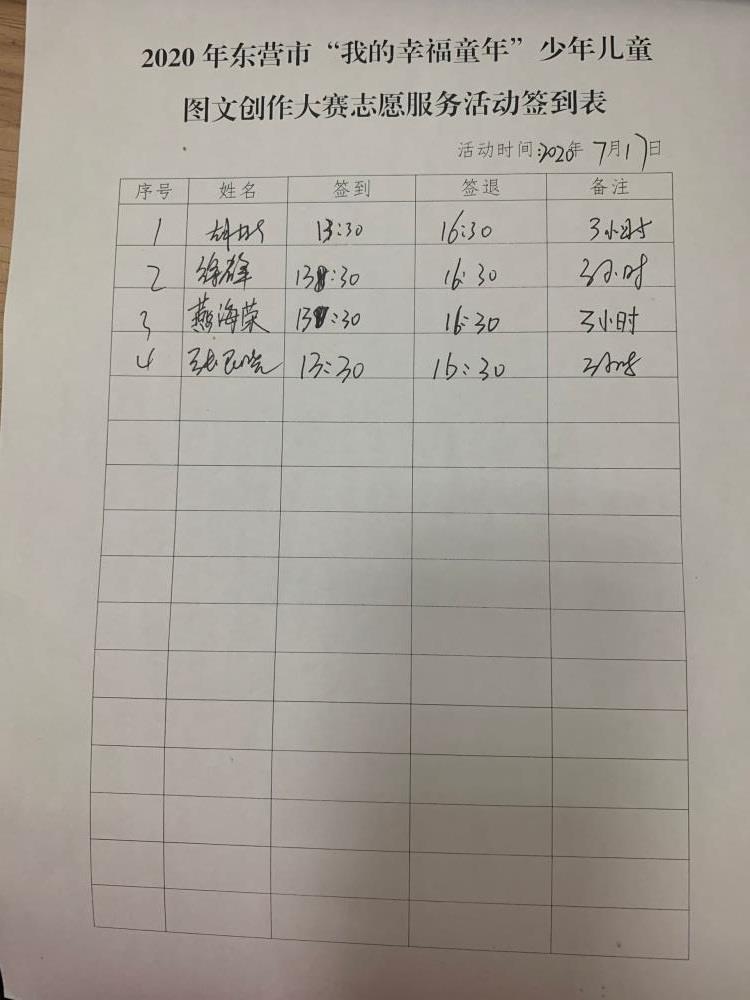 2020年东营市“我的幸福童年”少年儿童
图文创作大赛志愿服务活动签到表
活动时间:2020年7月17日
序号 姓名 签到 签退 备注
1 13:30 16:30 3小时
2 徐雄 13:30 16:30 3小时
3 燕海荣 13:30 16:30 3小时
4 13:30 16:30 3小时